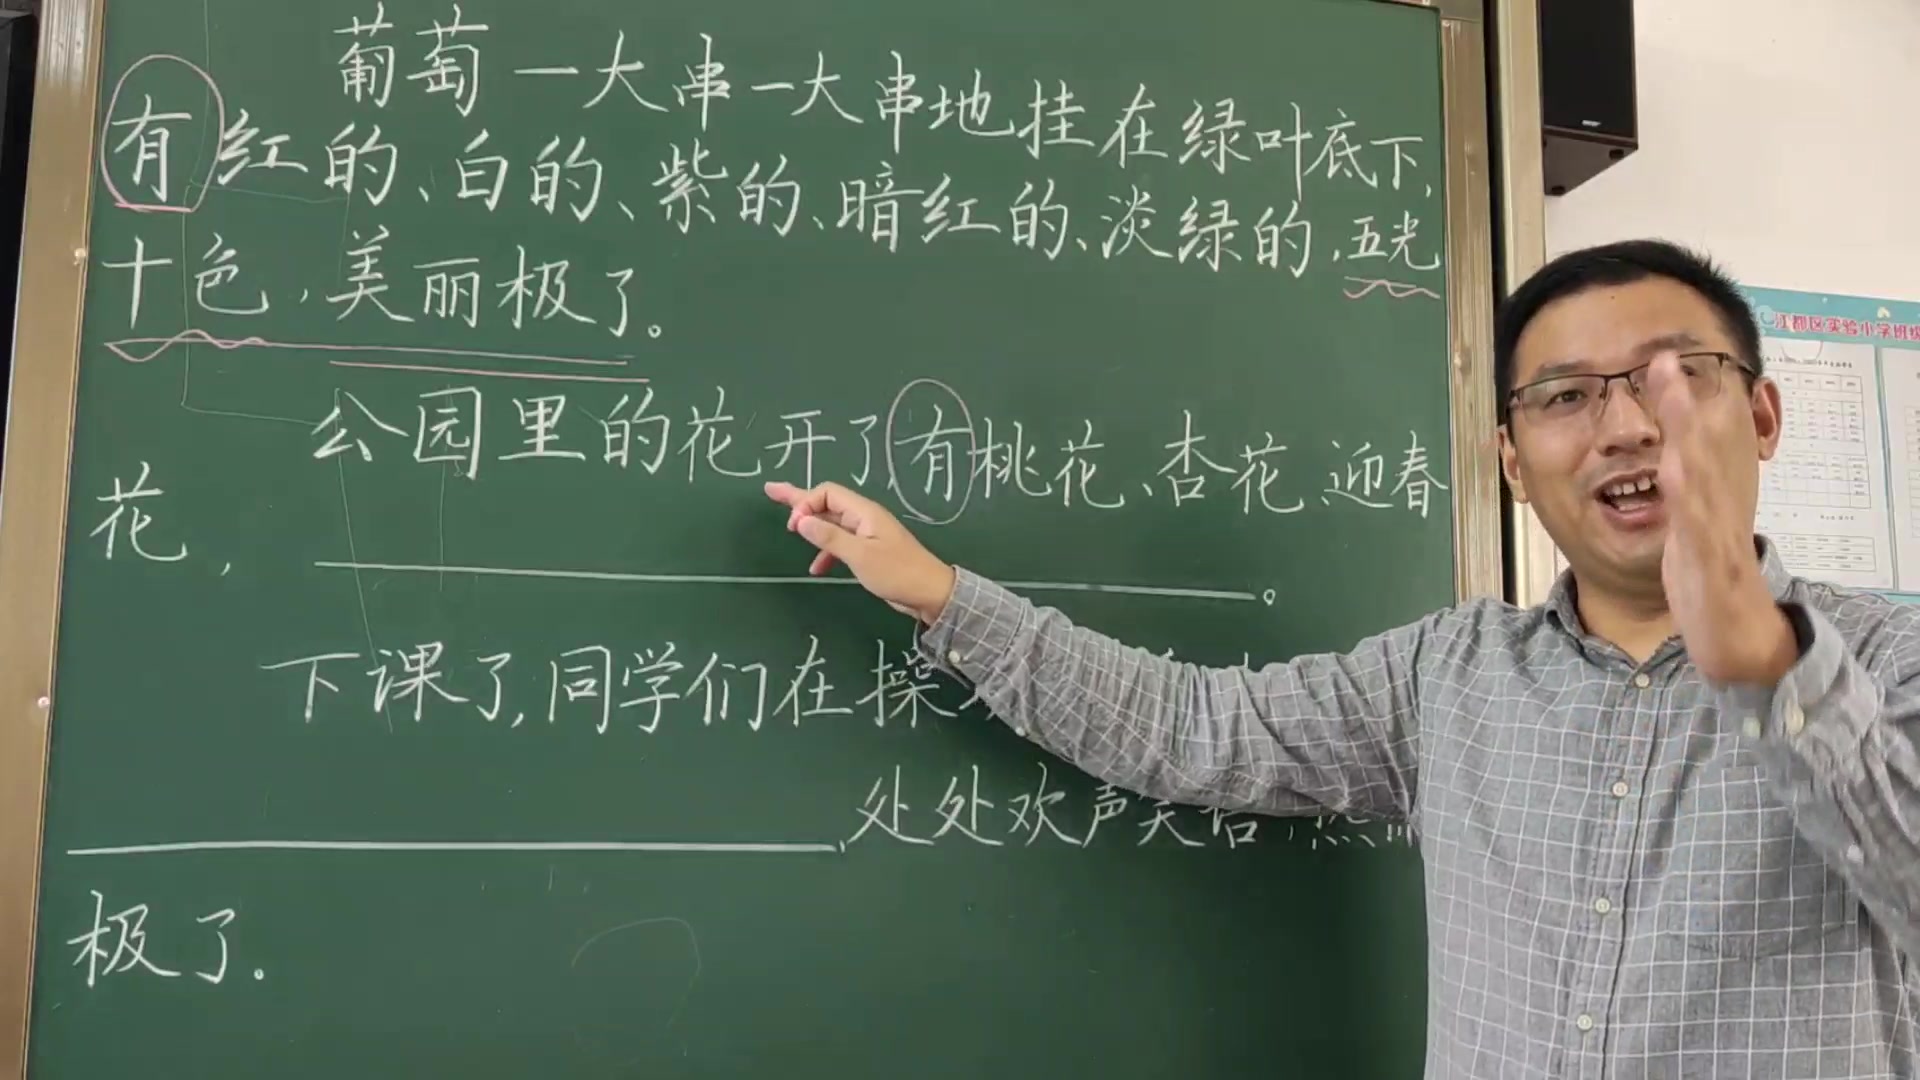 葡萄一大串一大串地挂在绿叶底下,
有红的、白的、紫的、暗红的、淡绿的,五光
十色,美丽极了。
公园里的花开了,有桃花、杏花、迎春
花,
。
下课了,同学们在操
处处欢声笑语,热闹
极了.
江都区实验小学班级